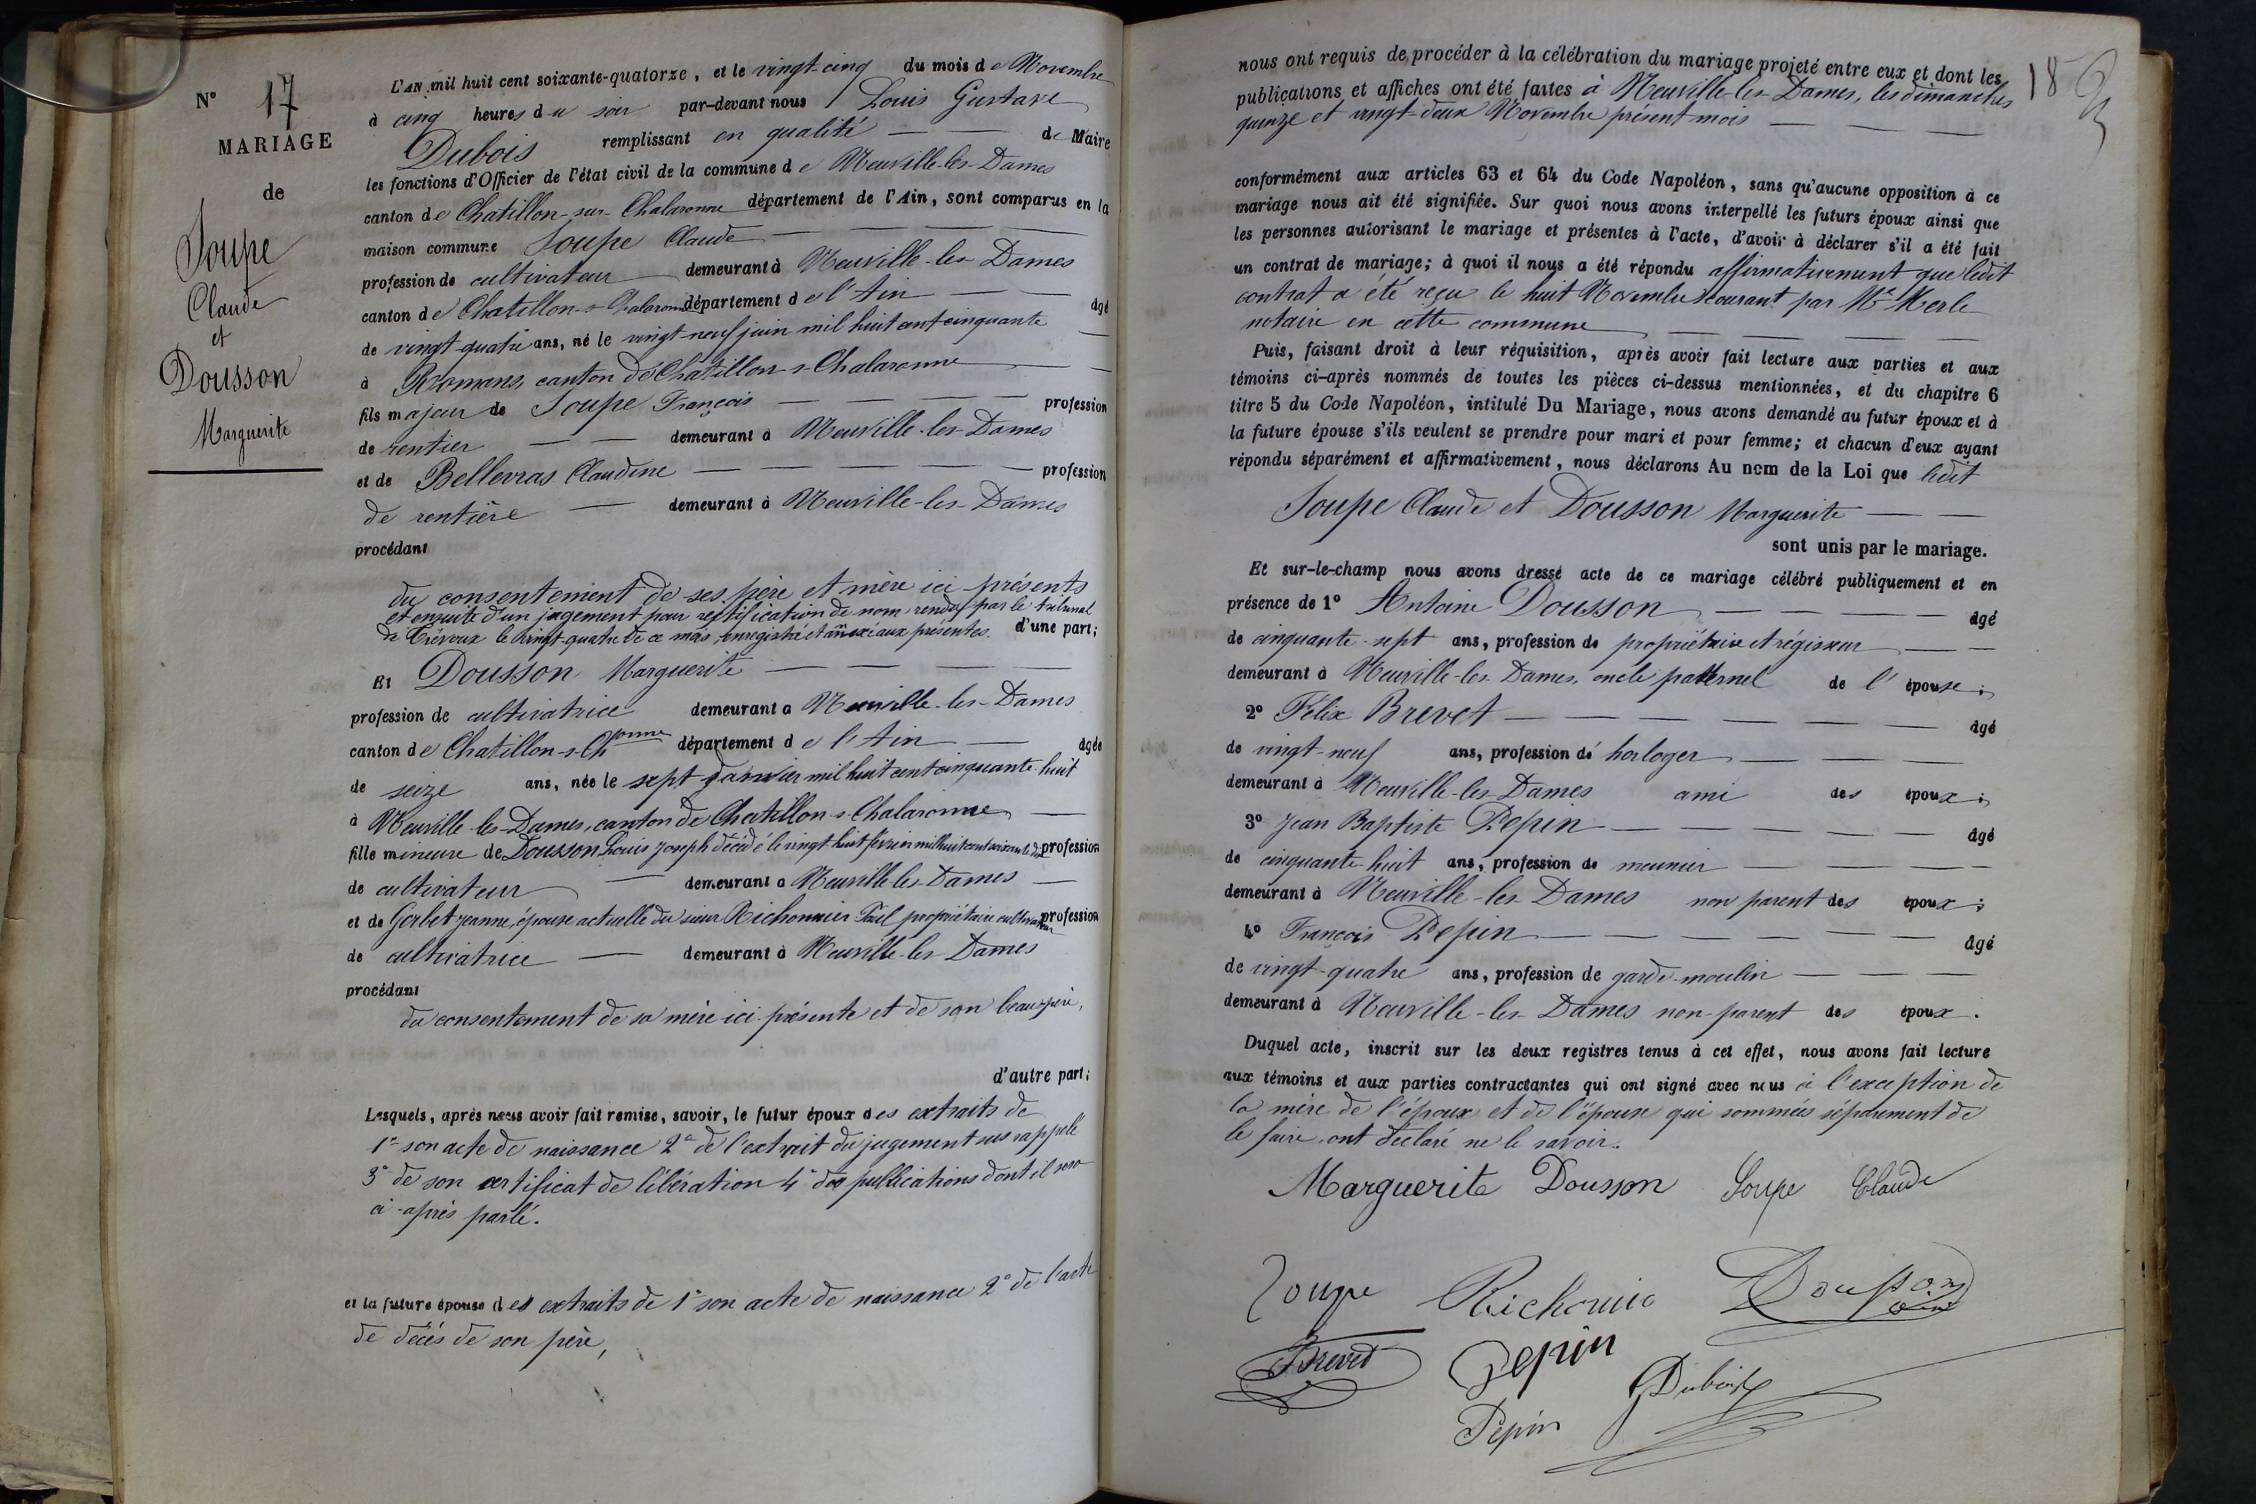 N° 17
MARIAGE
de
Soupe
Claude
et
Dousson
Marguerite
L'AN mil huit cent soixante-quatorze, et le vingt-cinq du mois de Novembre
à cinq heures du soir par-devant nous Louis Gustave
Dubois remplissant en qualité — — de Maire
les fonctions d'Officier de l'état civil de la commune de Neuville-les-Dames
canton de Chatillon-sur-Chalaronne département de l'Ain, sont comparus en la
maison commune Soupe Claude — — — —
profession de cultivateur demeurant à Neuville-les-Dames
canton de Chatillon-s-Chalaronne département de l'Ain — — âgé
de vingt-quatre ans, né le vingt-neuf juin mil huit cent cinquante —
à Romans, canton de Châtillon-s-Chalaronne — —
fils majeur de Soupe François — — — — profession
de rentier — — demeurant à Neuville-les-Dames
et de Bellevras Claudine — — — — — profession
de rentière — demeurant à Neuville-les-Dames
procédant
du consentement de ses père et mère ici présents
et ensuite d'un jugement pour rectification de nom rendu par le tribunal
de Trévoux le vingt-quatre de ce mois, enregistré et annexé aux présentes. d'une part;
Et Dousson Marguerite — — — —
profession de cultivatrice demeurant à Neuville-les-Dames
canton de Chatillon-s-Chonne département de l'Ain — âgée
de seize ans, née le sept Janvier mil huit cent cinquante-huit
à Neuville-les-Dames, canton de Chatillon-s-Chalaronne —
fille mineure de Dousson Louis Joseph décédé le vingt huit février mil huit cent soixante dix profession
de cultivateur — demeurant à Neuville-les-Dames —
et de Gerbet Jeanne, épouse actuelle du sieur Richonnier Paul propriétaire cultivateur profession
de cultivatrice — demeurant à Neuville-les-Dames
procédant
du consentement de sa mère ici-présente et de son beau-père,
d'autre part;
Lesquels, après nous avoir fait remise, savoir, le futur époux des extraits de
1° son acte de naissance 2° de l'extrait du jugement sus rappelé
3° de son certificat de libération 4° des publications dont il sera
ci-après parlé.
et la future épouse des extraits de 1° son acte de naissance 2° de l'acte
de décès de son père,
18
nous ont requis de procéder à la célébration du mariage projeté entre eux et dont les
publications et affiches ont été faites à Neuville-les-Dames, les dimanches
quinze et vingt-deux Novembre présent mois — — —
conformément aux articles 63 et 64 du Code Napoléon, sans qu'aucune opposition à ce
mariage nous ait été signifiée. Sur quoi nous avons interpellé les futurs époux ainsi que
les personnes autorisant le mariage et présentes à l'acte, d'avoir à déclarer s'il a été fait
un contrat de mariage; à quoi il nous a été répondu affirmativement que ledit
contrat a été reçu le huit Novembre courant par Me Merle
notaire en cette commune — — — —
Puis, faisant droit à leur réquisition, après avoir fait lecture aux parties et aux
témoins ci-après nommés de toutes les pièces ci-dessus mentionnées, et du chapitre 6
titre 5 du Code Napoléon, intitulé Du Mariage, nous avons demandé au futur époux et à
la future épouse s'ils veulent se prendre pour mari et pour femme; et chacun d'eux ayant
répondu séparément et affirmativement, nous déclarons Au nom de la Loi que ledit
Soupe Claude et Dousson Marguerite — —
sont unis par le mariage.
Et sur-le-champ nous avons dressé acte de ce mariage célébré publiquement et en
présence de 1° Antoine Dousson — — — — âgé
de cinquante-sept ans, profession de propriétaire et régisseur — —
demeurant à Neuville-les-Dames, oncle paternel de l'épouse;
2° Félix Brevet — — — — — — âgé
de vingt-neuf ans, profession de horloger — — —
demeurant à Neuville-les-Dames ami des époux;
3° Jean Baptiste Pepin — — — — — âgé
de cinquante-huit ans, profession de meunier — — —
demeurant à Neuville-les-Dames non parent des époux;
4° François Pepin — — — — — — âgé
de vingt-quatre ans, profession de garde-moulin — — —
demeurant à Neuville-les-Dames non-parent des époux.
Duquel acte, inscrit sur les deux registres tenus à cet effet, nous avons fait lecture
aux témoins et aux parties contractantes qui ont signé avec nous à l'exception de
la mère de l'époux et de l'épouse qui sommées séparément de
le faire, ont déclaré ne le savoir.
Marguerite Dousson Soupe Claude
Soupe Richonnier Dousson
Brevet Pepin
Pepin GDubois